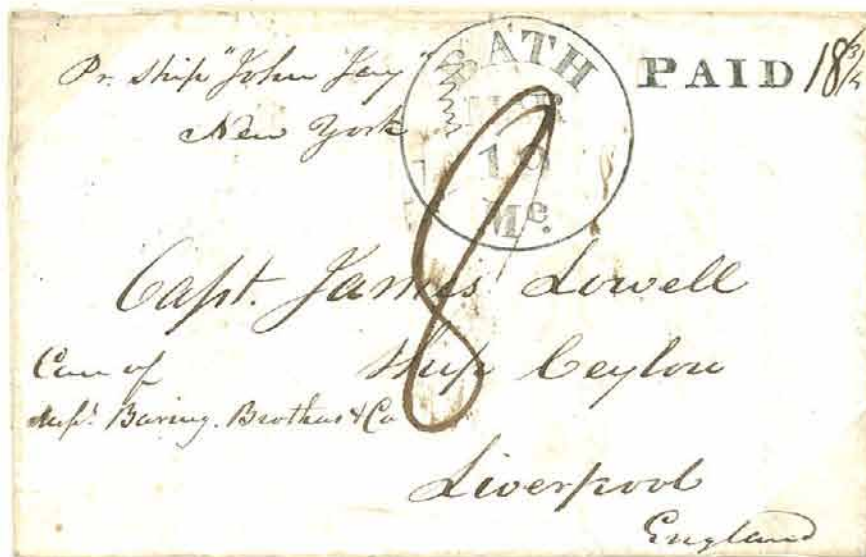 Pr. Ship "John Jay"
New York
BATH
10
Me.
PAID 18 3/4
8
Capt. James Lowell
Ship Ceylon
Care of
Messrs Baring. Brothers & Co
Liverpool
England